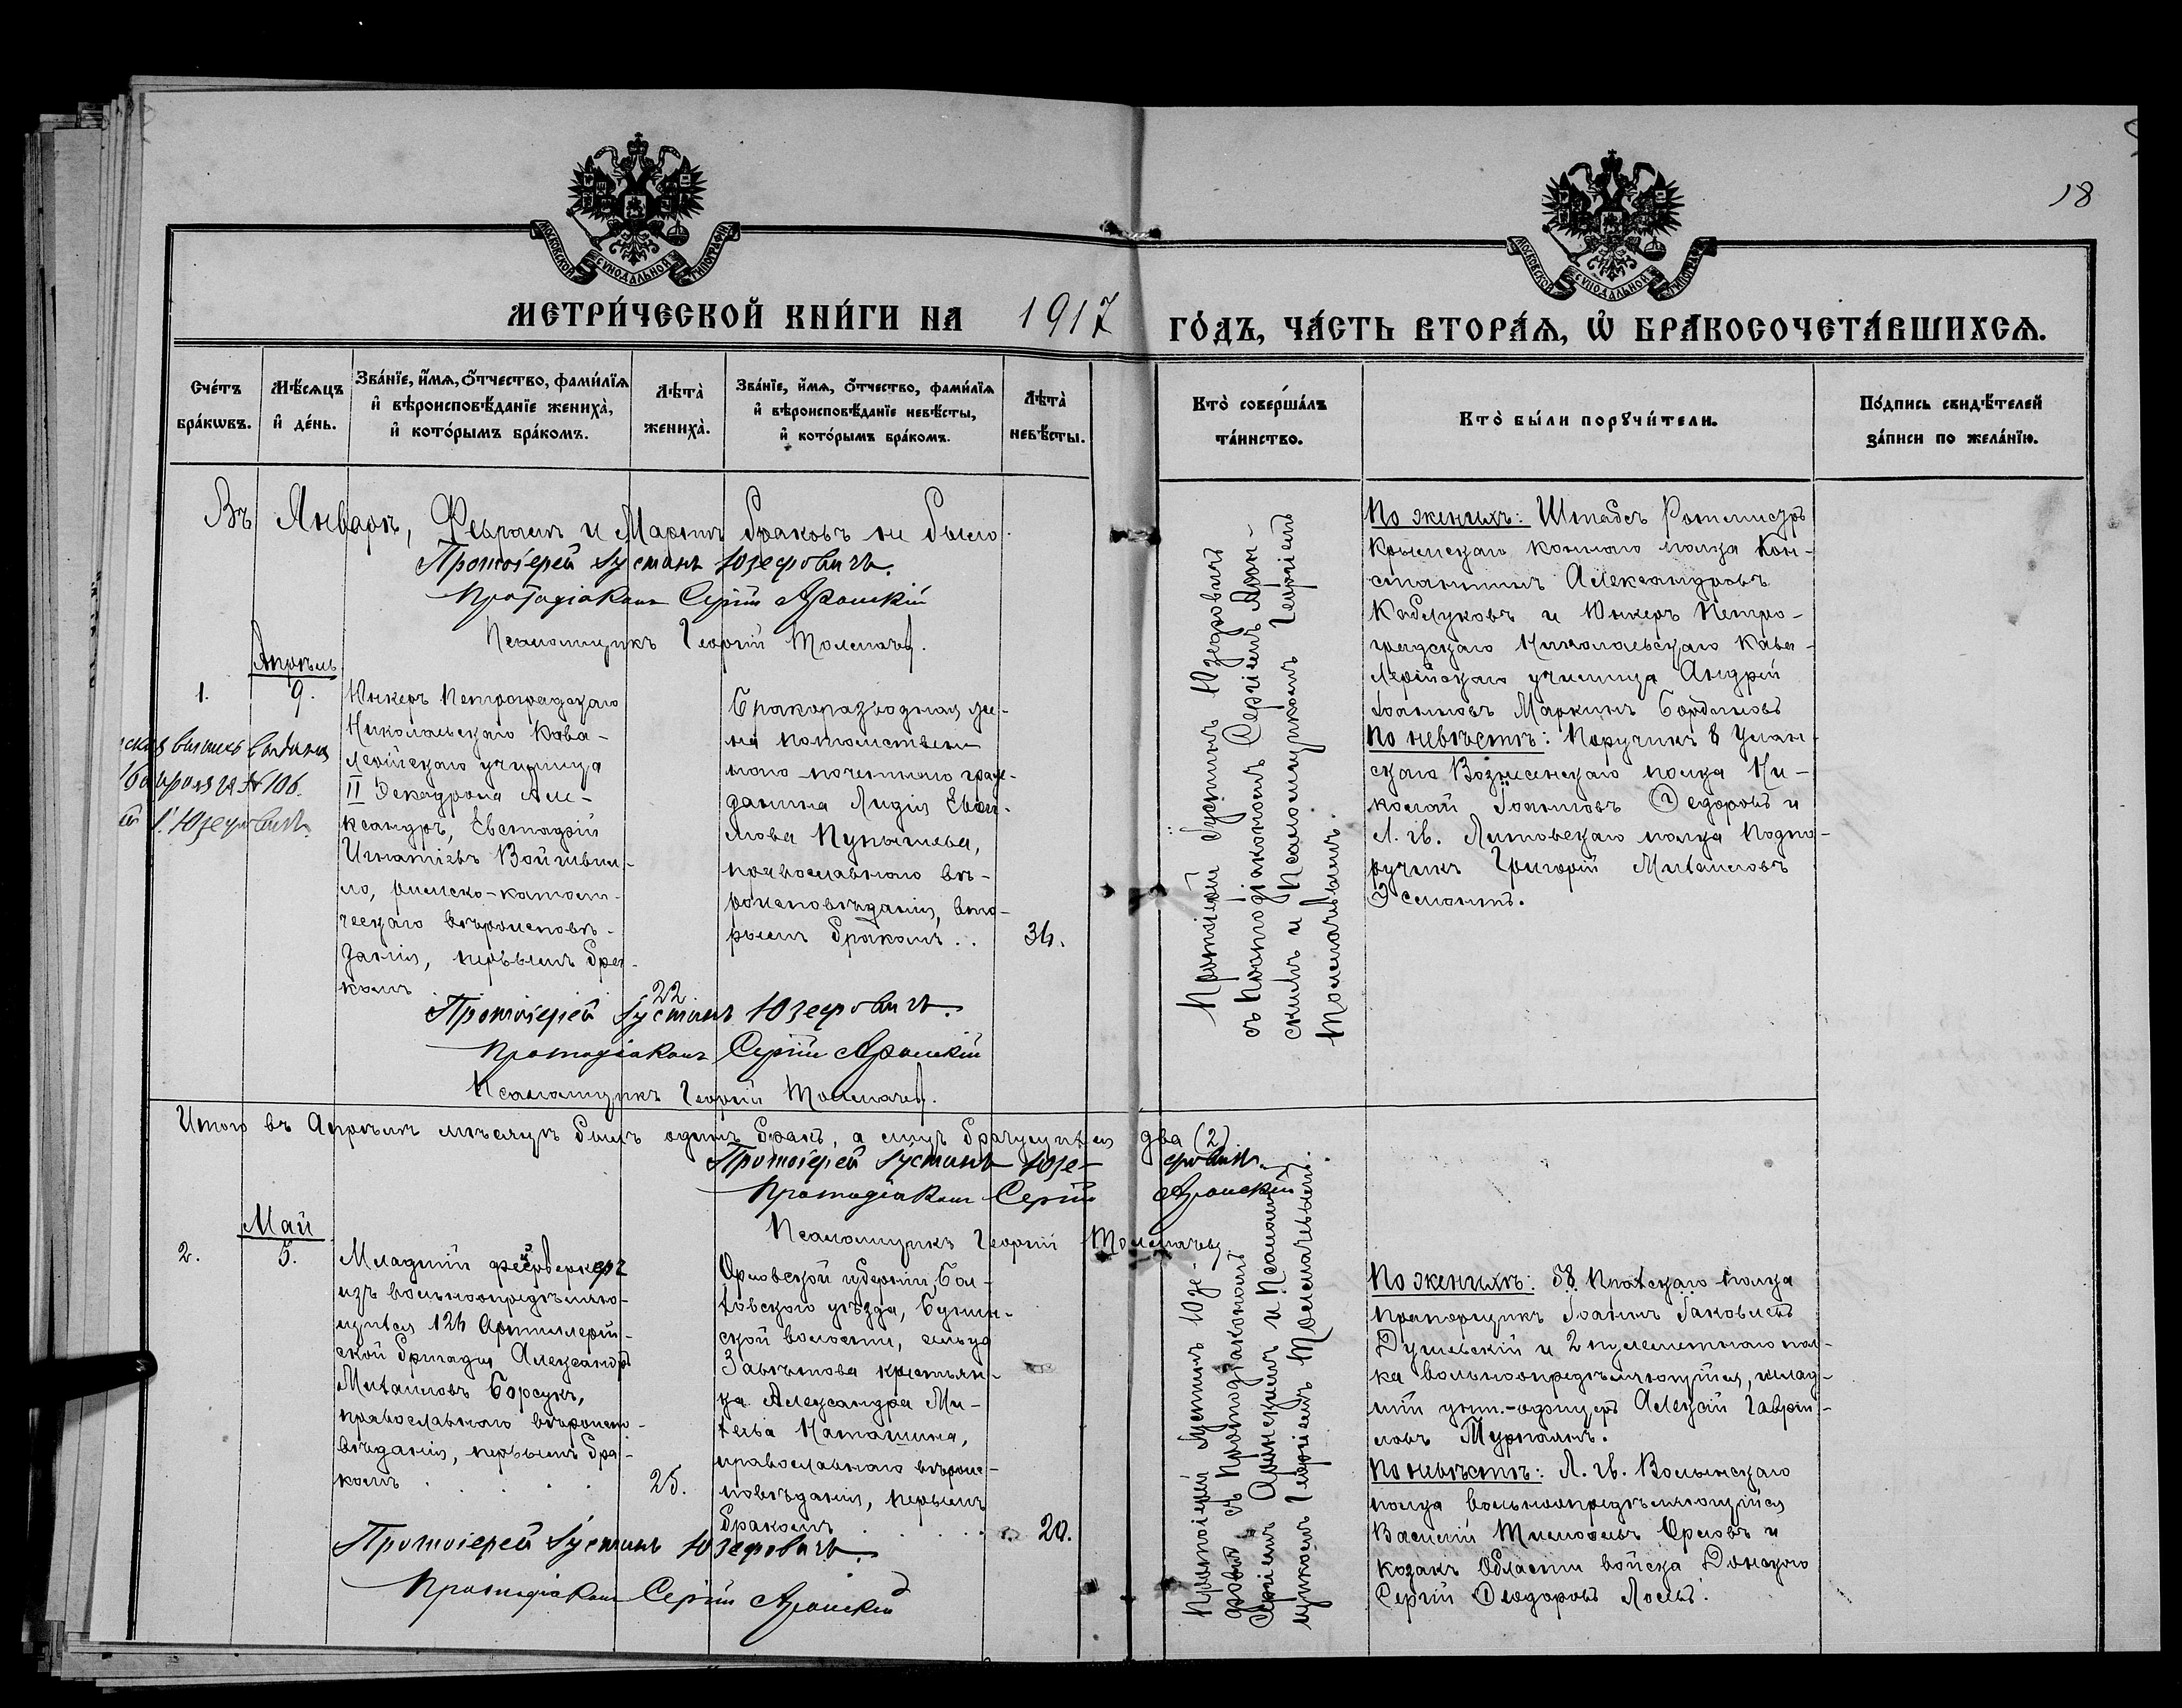 18
МОСКОВСКОЙ СѴНОДАЛЬНОЙ ТИПОГРАФІИ
МОСКОВСКОЙ СѴНОДАЛЬНОЙ ТИПОГРАФІИ
МЕТРИ́ЧЕСКОЙ КНИ́ГИ НА 1917 ГО́ДЪ, ЧА́СТЬ ВТОРА́Я, Ѡ҆ БРАКОСОЧЕТА́ВШИХСЯ.
Сче́тъ бра́кѡвъ.
Мѣ́сяцъ и҆ де́нь.
Зва́нїе, и҆́мя, ѻ҆́тчество, фами́лїя
и҆ вѣроисповѣ́данїе жениха̀,
и҆ кото́рымъ бра́комъ.
Лѣта̀ жениха̀.
Зва́нїе, и҆́мя, ѻ҆́тчество, фами́лїя
и҆ вѣроисповѣ́данїе невѣ́сты,
и҆ кото́рымъ бра́комъ.
Лѣта̀ невѣ́сты.
Кто̀ соверша́лъ та́инство.
Кто̀ бы́ли порꙋчи́тели.
По́дпись свидѣ́телей
за́писи по жела́нїю.
Въ Январѣ, Февралѣ и Мартѣ браковъ не было.
Протоіерей Іустинъ Юзефовичъ.
Протодіаконъ Сергій Афонскій
Псаломщикъ Георгій Толмачевъ.
Апрѣль
1. 9.
выпись выдана
№ 106.
І. Юзефовичъ.
Юнкеръ Петроградскаго
Николаевскаго Кава-
лерійскаго училища
II Эскадрона Але-
ксандръ, Евстафій
Игнатіевъ Войшвил-
ло, римско-католи-
ческаго вѣроисповѣ-
данія, первымъ бра-
комъ
22
Бракоразводная же-
на потомствен-
наго почетнаго граж-
данина Лидія
православнаго вѣ-
роисповѣданія, вто-
рымъ бракомъ . .
34.
Протоіерей Іустинъ Юзефовичъ
съ Протодіакономъ Сергіемъ Афон-
скимъ и Псаломщикомъ Георгіемъ
Толмачевымъ.
По женихѣ: Штабсъ Ротмистръ
Крымскаго коннаго полка Кон-
стантинъ Александровъ
Каблуковъ и Юнкеръ Петро-
градскаго Николаевскаго Кава-
лерійскаго училища Андрей
Іоанновъ
По невѣстѣ: Поручикъ 8 Улан-
скаго Вознесенскаго полка Ни-
колай Іоанновъ Ѳедоровъ и
Л. гв. Литовскаго полка Подпо-
ручикъ Григорій Михаиловъ
Протоіерей Іустинъ Юзефовичъ.
Протодіаконъ Сергій Афонскій
Псаломщикъ Георгій Толмачевъ.
Итого въ Апрѣлѣ мѣсяцѣ былъ одинъ бракъ, а лицъ брачущихся два (2).
Протоіерей Іустинъ Юзефовичъ.
Протодіаконъ Сергій Афонскій
Псаломщикъ Георгій Толмачевъ.
Май
2. 5.
Младшій фейерверкеръ
изъ вольноопредѣляю-
щихся 124 Артиллерій-
ской бригады Александръ
Михаиловъ Борсукъ,
православнаго вѣроиспо-
вѣданія, первымъ бра-
комъ . . . .
25.
Орловской губерніи, Бол-
ховского уѣзда,
ской волости, сельца
крестьян-
ка Александра Ми-
хеева Наташина,
православнаго вѣроис-
повѣданія, первымъ
бракомъ . . . .
20.
Протоіерей Іустинъ Юзе-
фовичъ съ Протодіакономъ
Сергіемъ Афонскимъ и Псалом-
щикомъ Георгіемъ Толмачевымъ.
По женихѣ: 58 Прагскаго полка
Прапорщикъ Іоаннъ Іаковлевъ
и 2 пулеметнаго пол-
ка вольноопредѣляющійся, млад-
шій унт.-офицеръ Алексій Гаврии-
ловъ
По невѣстѣ: Л. гв. Волынскаго
полка вольноопредѣляющійся
Василій Тимофеевъ Орловъ и
козакъ Области войска Донского
Сергій Ѳеодоровъ
Протоіерей Іустинъ Юзефовичъ.
Протодіаконъ Сергій Афонскій